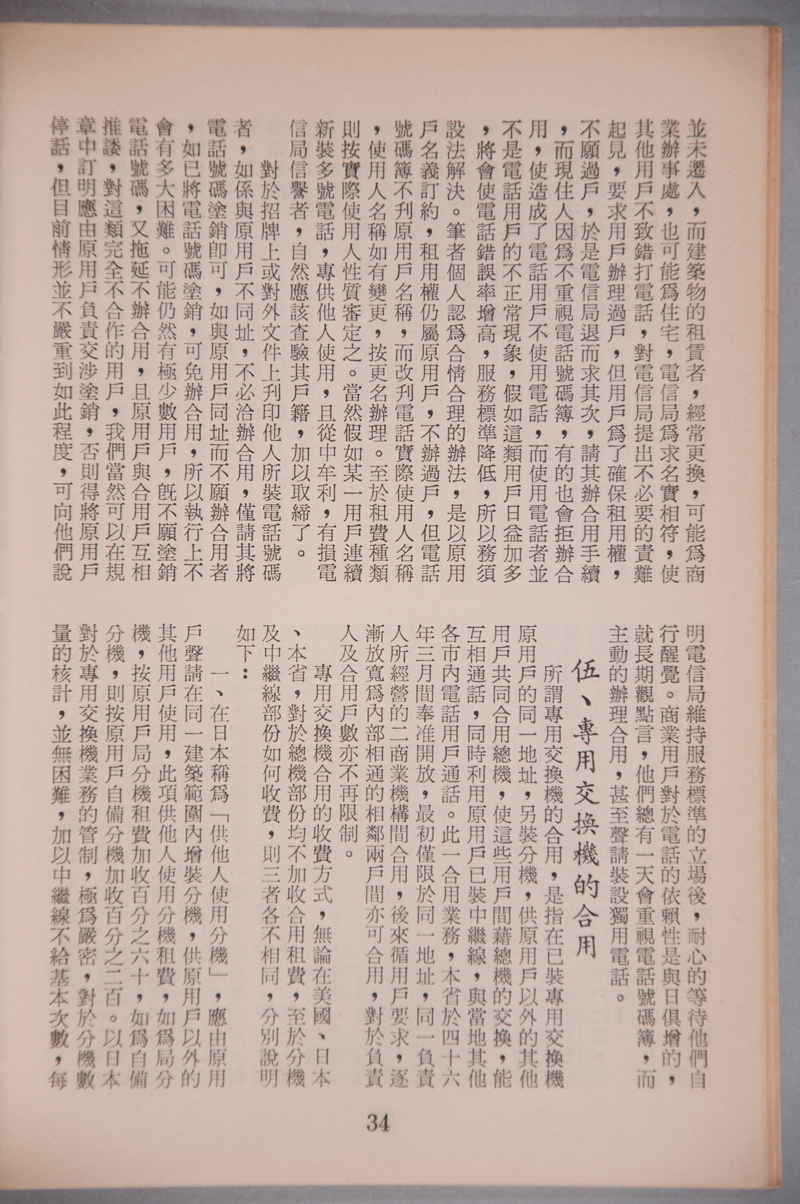 並未遷入，而建築物的租賃者，經常更換，可能爲商
業辦事處，也可能爲住宅，電信局爲求名實相符，使
其他用戶不致錯打電話，對電信局提出不必要的責難
起見，要求用戶辦理過戶，但用戶爲了確保租用權，
不願過戶，於是電信局退而求其次，請其辦合用手續
，而現住人因爲不重視電話號碼簿，有的也會拒辦合
用，使造成了電話用戶不使用電話，而使用電話者並
不是電話用戶的不正常現象，假如這類用戶日益加多
，將會使電話錯誤率增高，服務標準降低，所以務須
設法解決。筆者個人認爲合情合理的辦法，是以原用
戶名義訂約，租用權仍屬原用戶，不辦過戶，但電話
號碼簿不刋原用戶名稱，而改刋電話實際使用人名稱
，使用人名稱如有變更，按更名辦理。至於租費種類
則按實際使用人性質審定之。當然假如某一用戶連續
新裝多號電話，專供他人使用，且從中牟利，有損電
信局信譽者，自然應該査驗其戶籍，加以取締了。
對於招牌上或對外文件上刋印他人所裝電話號碼
者，如係與原用戶不同址，不必洽辦合用，僅請其將
電話號碼塗銷卽可，如與原用戶同址而不願辦合用者
，如已將電話號碼塗銷，可免辦合用，所以執行上不
會有多大困難。可能仍然有極少數用戶，旣不願塗銷
電話號碼，又拖延不辦合用，且原用戶與合用戶互相
推諉，對這類完全不合作的用戶，我們當然可以在規
章中訂明應由原用戶負責交涉塗銷，否則得將原用戶
停話，但目前情形並不嚴重到如此程度，可向他們說
明電信局維持服務標準的立場後，耐心的等待他們自
行醒覺。商業用戶對於電話的依賴性是與日俱增的，
就長期觀點言，他們總有一天會重視電話號碼簿，而
主動的辦理合用，甚至聲請裝設獨用電話。
伍、專用交換機的合用
所謂專用交換機的合用，是指在已裝專用交換機
原用戶的同一地址，另裝分機，供原用戶以外的其他
用戶共同合用總機，使這些用戶間藉總機的交換，能
互相通話，同時利用原用戶已裝中繼線，與當地其他
各市內電話用戶通話。此一合用業務，本省於四十六
年三月間奉准開放，最初僅限於同一地址，同一負責
人所經營的二商業機構間合用，後來循用戶要求，逐
漸放寬爲內部相通的相鄰兩戶間亦可合用，對於負責
人及合用戶數亦不再限制。
專用交換機合用的收費方式，無論在美國、日本
、本省，對於總機部份均不加收合用租費，至於分機
及中繼線部份如何收費，則三者各不相同，分別說明
如下：
一、在日本稱爲「供他人使用分機」，應由原用
戶聲請在同一建築範圍內增裝分機，供原用戶以外的
其他用戶使用，此項供他人使用分機租費，如爲局分
機，按原用戶局分機租費加收百分之六十，如爲自備
分機，則按原用戶自備分機加收百分之二百。以日本
對於專用交換機業務的管制，極爲嚴密，對於分機數
量的核計，並無困難，加以中繼線不給基本次數，每
34